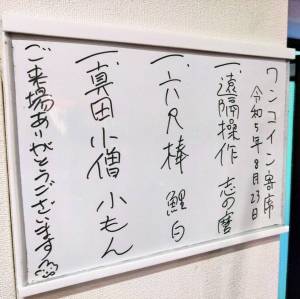 ワンコイン寄席
令和5年8月23日
一、遠隔操作 志の麿
一、六尺棒 鯉白
一、真田小僧 小もん
ご来場ありがとうございます